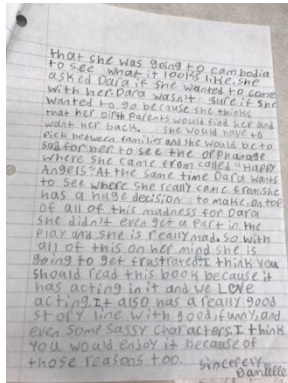 that she was going to cambodia
to see what it looks like. she
asked Dara if she wanted to come
with her. Dara wasn't sure if she
wanted to go because she thinks
that her birth parents would find her and
want her back. she would have to
pick between families and she would be to
sad for her to see the orphanage
where she came from called "Happy
Angels". At the same time Dara wants
to see where she really came from. she
has a huge decision to make. on top
of all of this madness for Dara
she didn't even get a part in the
play and she is really mad. so with
all of this on her mind she is
going to get frustrated. I think you
should read this book because it
has acting in it and we LOVE
acting. It also has a really good
story line with good, funny, and
even some sassy characters. I think
you would enjoy it because of
those reasons too. sincerely
Danielle